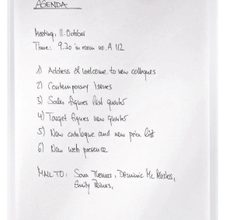 AGENDA
Meeting, 11. October
Time: 9.30 in room no. A 112
1) Address of welcome to new colleagues
2) Contemporary Issues
3) Sales figures last quarter
4) Target figures new quarter
5) New catalogue and new price list
6) New web presence
MAIL TO: Sam Thomas, Dominic Mc
Emily